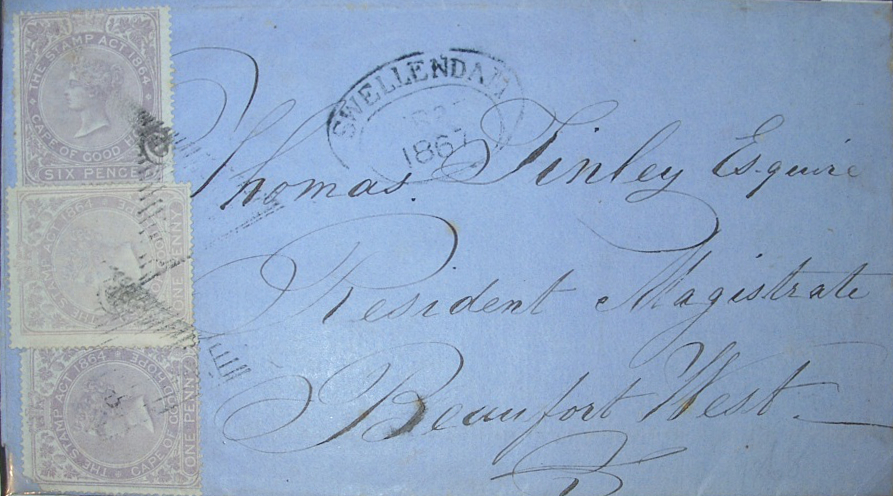 THE STAMP ACT, 1864
CAPE OF GOOD
SIX PENCE
STAMP ACT 1864
ONE PENNY
THE STAMP ACT 1864
CAPE OF GOOD HOPE
ONE PENNY
SWELLENDAM
1867
Thomas Finley Esquire
Resident Magistrate
Beaufort West.